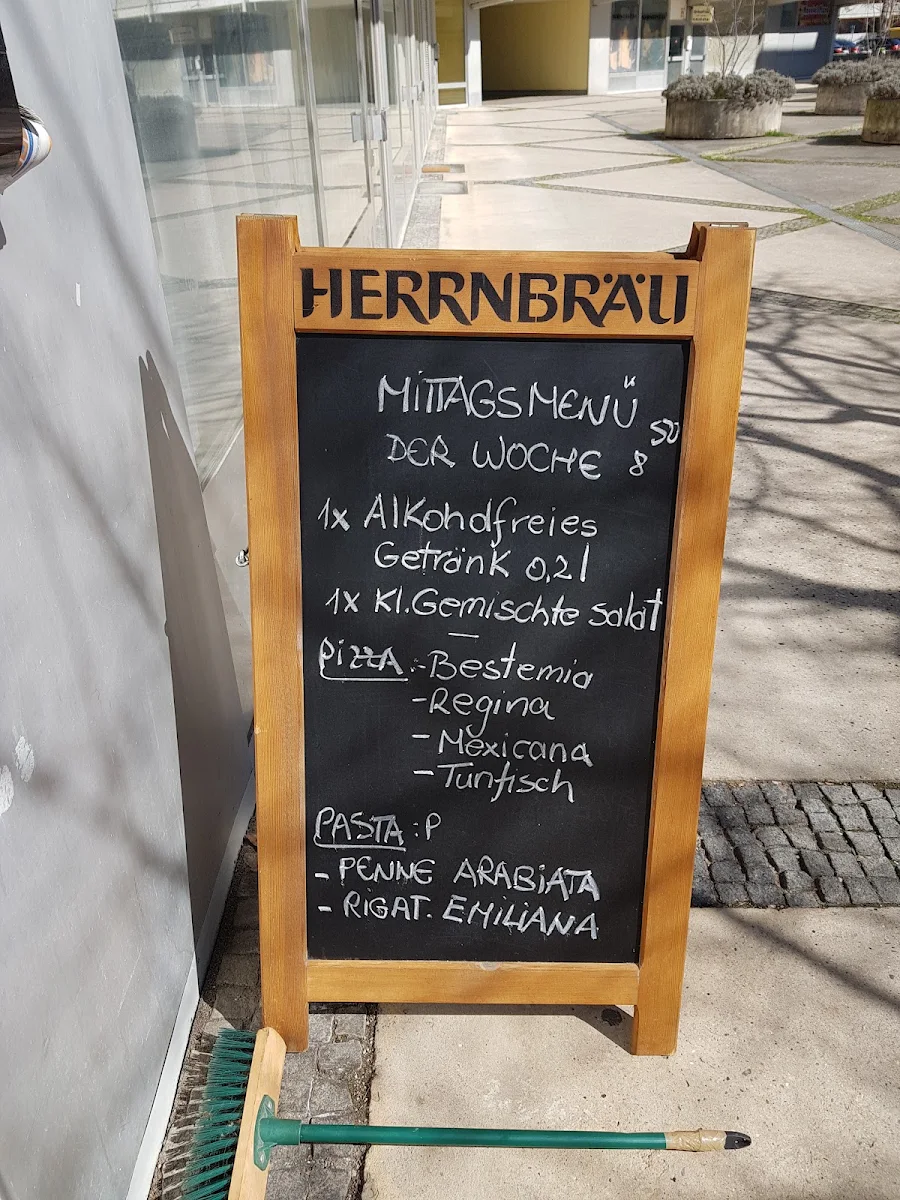 HERRNBRÄU
MITTAGSMENÜ
DER WOCHE 8 50
1x Alkohdfreies
Getränk 0,2l
1x Kl. Gemischte Salat
—
PIZZA :-Bestemia
-Regina
- Mexicana
- Tunfisch
PASTA : P
- PENNE ARABIATA
- RIGAT. EMILIANA